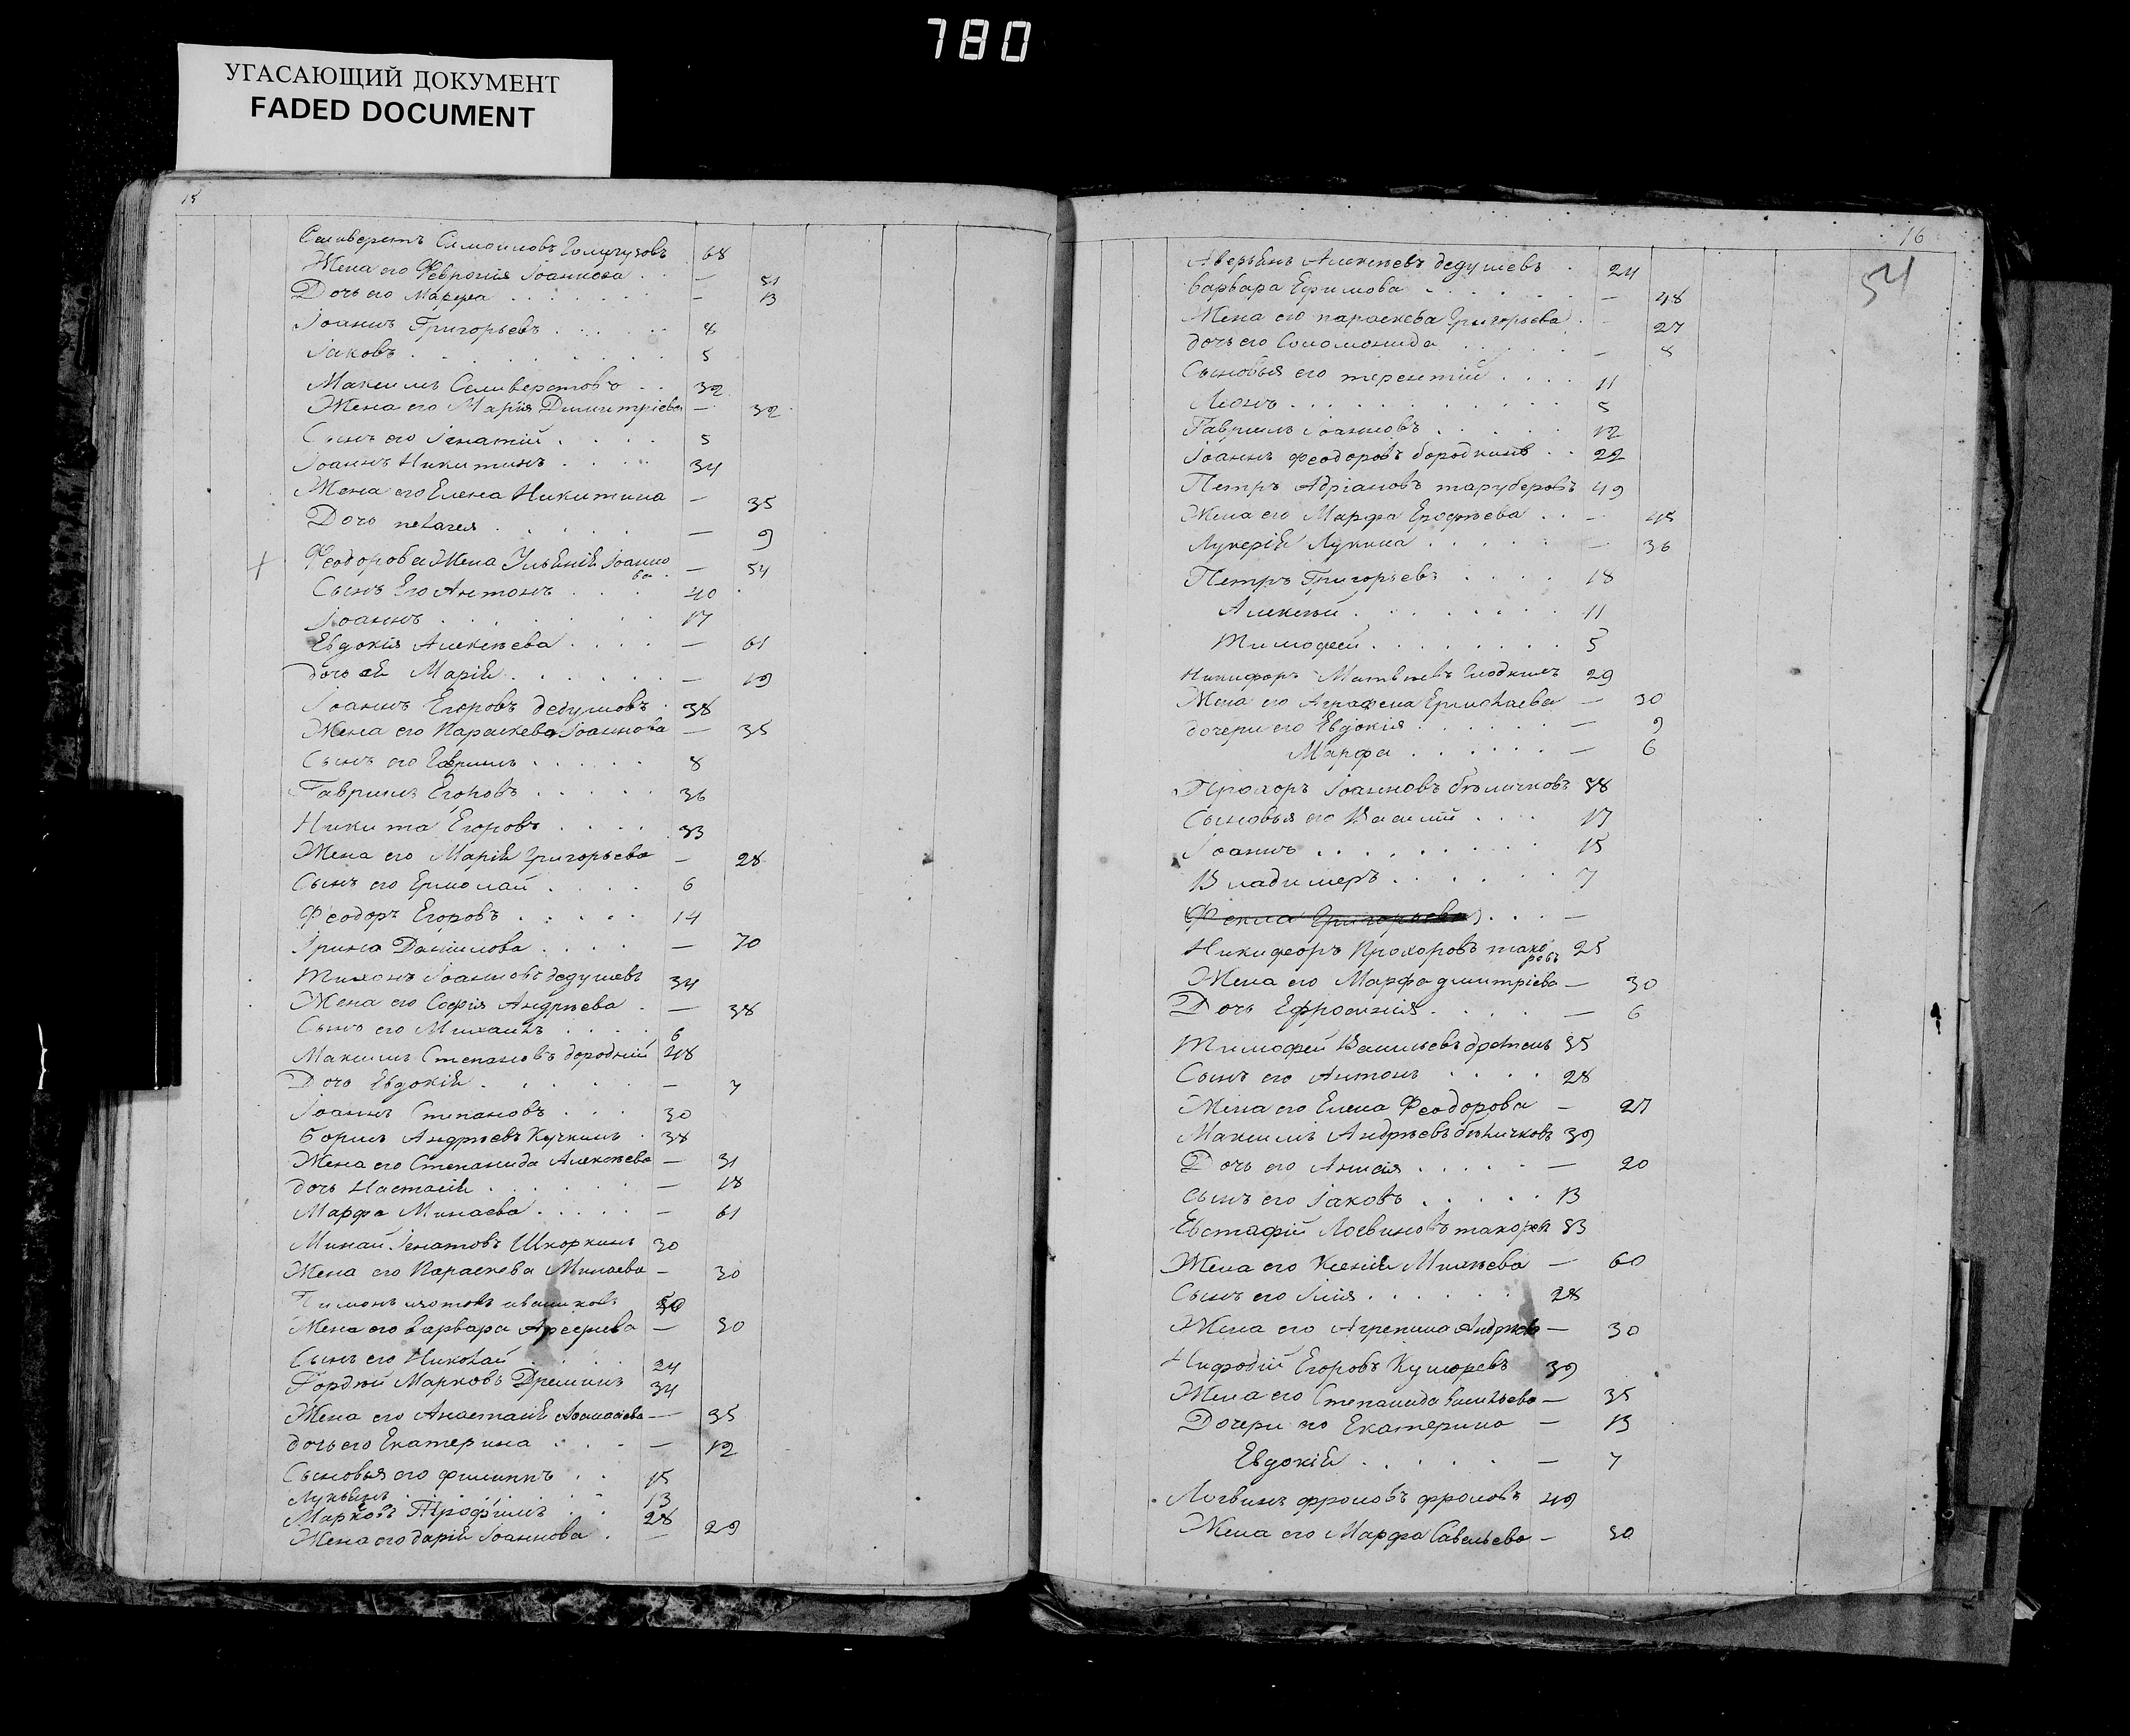 780
УГАСАЮЩИЙ ДОКУМЕНТ
FADED DOCUMENT
15
Селиверстъ Самойловъ 68
Жена его Феврония Іоаннова — 51
Дочь его Марфа — 13
Іоаннъ Григорьевъ 8
Іаковъ 5
Максимъ Селиверстовъ 32
Жена его Марія Димитріева — 32
Сынъ его Игнатій 5
Іоаннъ Никитинъ 34
Жена его Елена Никитина — 35
Дочь пелагея — 9
Феодорова Жена Ульянія Іоанно
ва — 54
Сынъ Его Антонъ 20
Іоаннъ 17
Евдокія Алексѣева — 61
дочь ея Марія — 19
Іоаннъ Егоровъ дедушовъ 38
Жена его Параскева Іоаннова — 35
Сынъ его Гаврилъ 8
Гаврилъ Егоровъ 36
Никита Егоровъ 33
Жена его Марія Григорьева — 28
Сынъ его Ермолай 6
Феодоръ Егоровъ 14
Ірина Данилова — 70
Тихонъ Іоанновъ дедушевъ 34
Жена его Софія Андрѣева — 38
Сынъ его Михаилъ 6
Максимъ Степановъ бородкий 48
Дочь Евдокія — 7
Іоаннъ Степановъ 30
Борисъ Андрѣевъ Кучкинъ 38
Жена его Степанида Алексѣева — 31
дочь Настасія — 18
Марфа Минаева — 61
Минай Игнатовъ Шкоркинъ 30
Жена его Параскева Минаева — 30
Пимонъ 50
Жена его Варвара — 50
Сынъ его Николай 24
Гордѣй Марковъ Дреминъ 34
Жена его Анастасія Афанасіева — 35
дочь его Екатерина — 12
Сыновья его филиппъ 15
Лукьянъ 13
Марковъ Трофимъ 28
Жена его дарія Іоаннова — 29
16
54
Аверьянъ Алексѣевъ дедушевъ 24
Варвара Ефимова — 48
Жена его параскева Григорьева — 27
дочь его Соломонида — 8
Сыновья его терентій 11
Леонъ 5
Гаврилъ Іоанновъ 12
Іоаннъ феодоровъ бородкинъ 22
Петръ Адріановъ таруберовъ 49
Жена его Марфа Ерофѣева — 45
Лукерія Лукина — 36
Петръ Григорьевъ 18
Алексѣй 11
Тимофей 5
Никифоръ Матвѣевъ 29
Жена его Аграфена Ермолаева — 30
дочери его Евдокія — 9
Марфа — 6
Прохоръ Іоанновъ бѣличковъ 38
Сыновья его Василій 17
Іоаннъ 15
Владимеръ 7
Фекла Григорьева —
Никифоръ Прохоровъ тако
ровъ 25
Жена его Марфа дмитріева — 30
Дочь Ефросинія — 6
Тимофей Васильевъ 35
Сынъ его Антонъ 28
Жена его Елена Феодорова — 27
Максимъ Андрѣевъ бѣличковъ 39
Дочь его Анисія — 20
Сынъ его Іаковъ 13
Евстафій Логвиновъ 83
Жена его Ксенія Михѣева — 60
Сынъ его Илія 28
Жена его Агрепина Андрѣева — 30
Нифодій Егоровъ 39
Жена его Степанида Васильева — 35
Дочери его Екатерина — 13
Евдокія — 7
Логвинъ фроловъ фроловъ 49
Жена его Марфа Савельева — 50